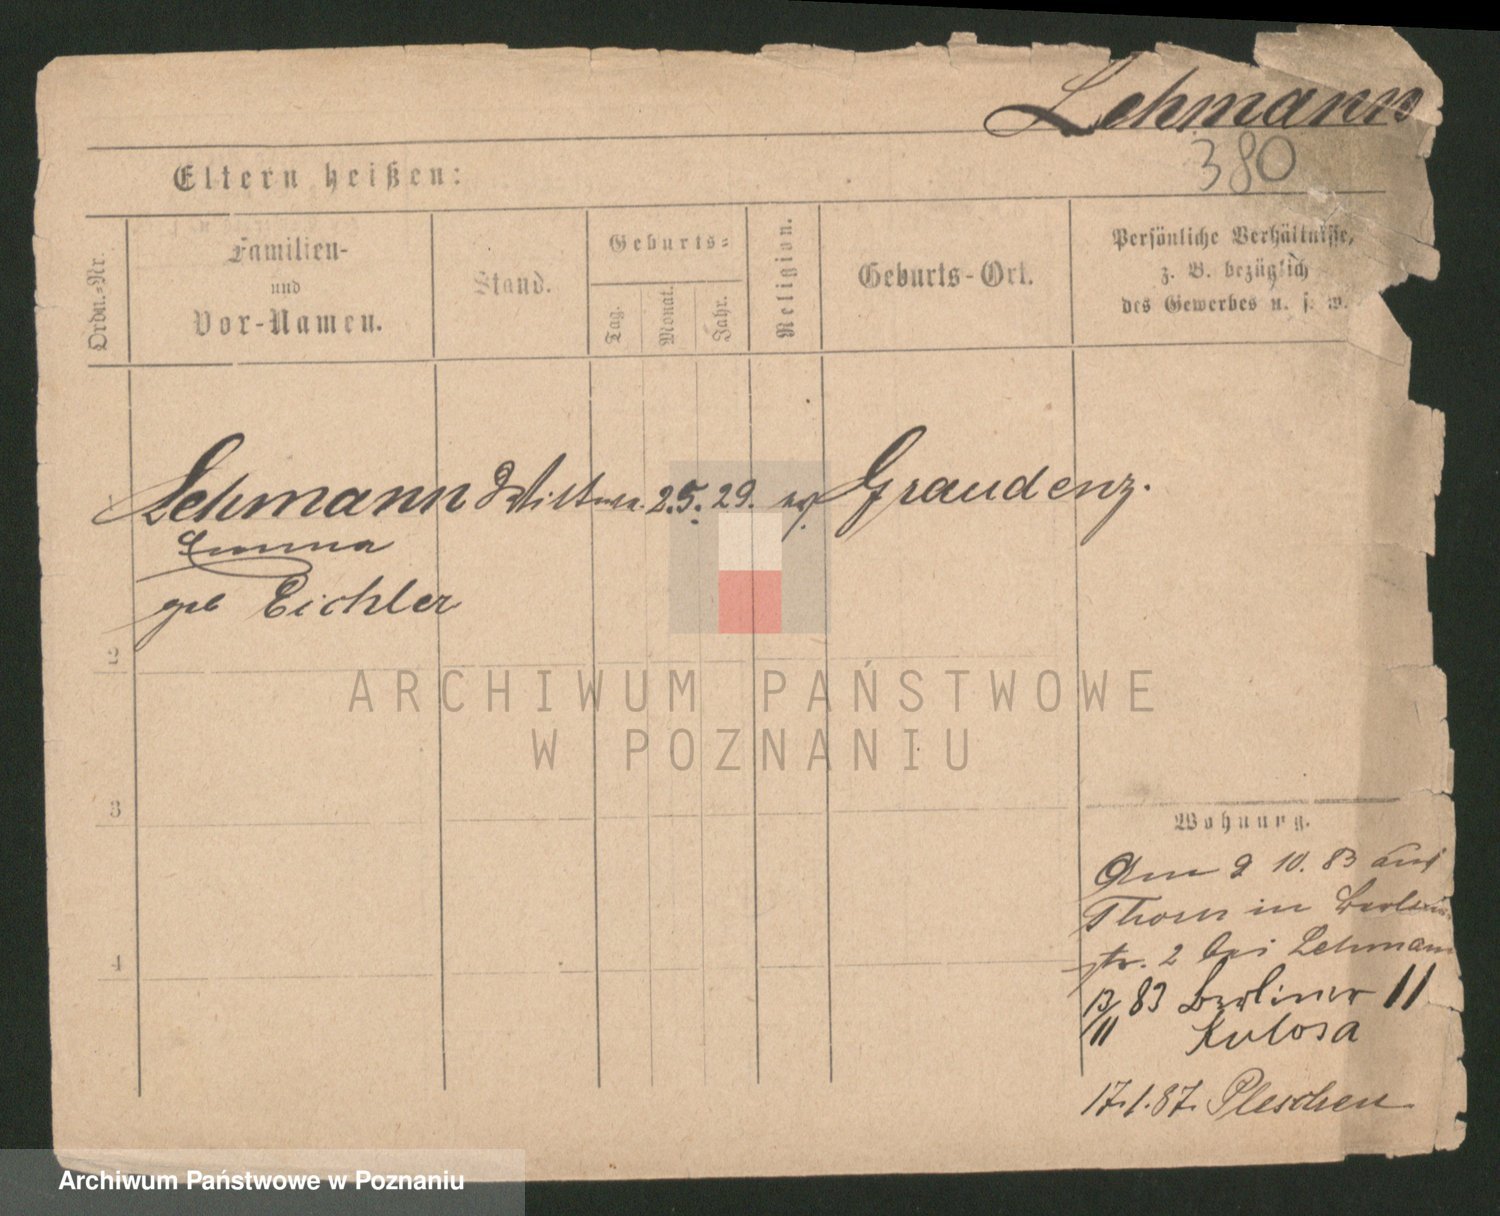 Lehmann
380
Eltern heißen:
Ordn.-Nr.
Familien-
und
Vor-Namen.
Stand.
Geburts-
Tag.
Monat.
Jahr.
Religion.
Geburts-Ort.
Persönliche Verhältnisse,
z. B. bezüglich
des Gewerbes u. s. w.
Lehmann Wittwe 2. 5. 29. Graudenz.
Emma
geb Eichler
2
3
4
Wohnung.
Am 9 10. 83 aus
Thorn in Berliner
str. 2 bei Lehmann
13/11 83 Berliner 11
Kulosa
17.1.87. Pleschen
ARCHIWUM PAŃSTWOWE
W POZNANIU
Archiwum Państwowe w Poznaniu